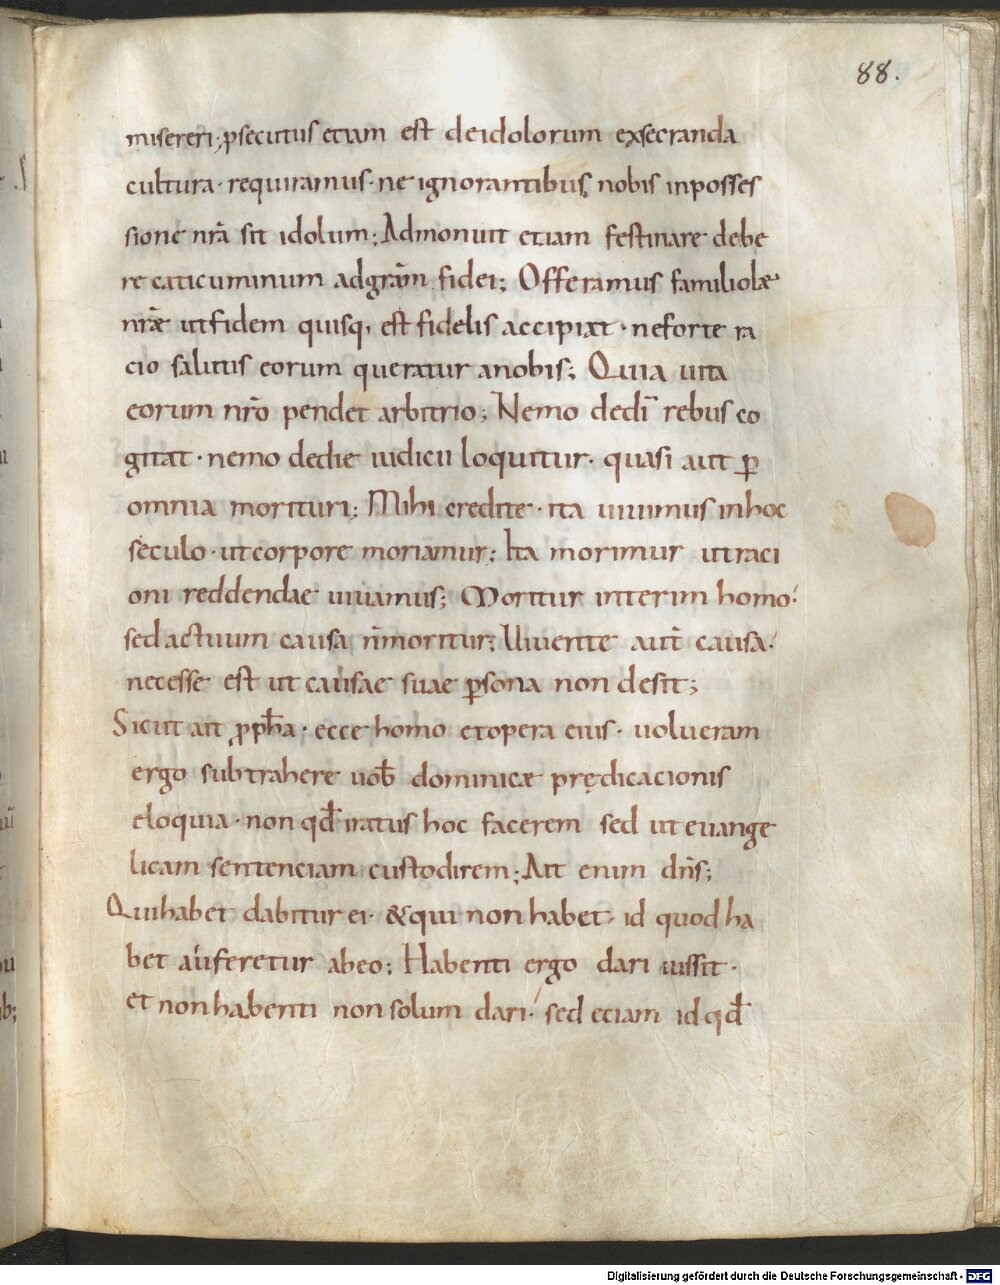 88.
misereri; p̱secutus etiam est deidolorum exsecranda
cultura · requiramus · ne ignorantibus nobis inposses
sione nr̄a sit idolum; Admonuit etiam festinare debe
re caticuminum adgr̄am fidei; Offeramus familiolæ
nr̄æ utfidem quisq, est fidelis accipiat · neforte ra
cio salutis eorum queratur anobis; Quia uita
eorum nr̄o pendet arbitrio; Nemo dedī rebus co
gitat · nemo dedie iudicii loquitur · quasi aut p̱
omnia morituri; Mihi credite · ita uiuimus inhoc
seculo · utcorpore moriamur; Ita morimur utraci
oni reddendae uiuamus; Moritur interim homo:
sed actuum causa n̄moritur; Uiuente aut̄ causa ·
necesse est ut causae suae p̱sona non desit;
Sicut ait ꝓph̄a · ecce homo etopera eius · uolueram
ergo subtrahere uob̄ dominicæ prędicacionis
eloquia · non qd̄ iratus hoc facerem sed ut euange
licam sentenciam custodirem; Ait enim dn̄s;
Quihabet dabitur ei · &qui non habet · id quod ha
bet auferetur abeo; Habenti ergo dari iussit ·
et nonhabenti non solum dari · sed etiam id qd̄
Digitalisierung gefördert durch die Deutsche Forschungsgemeinschaft - DFG